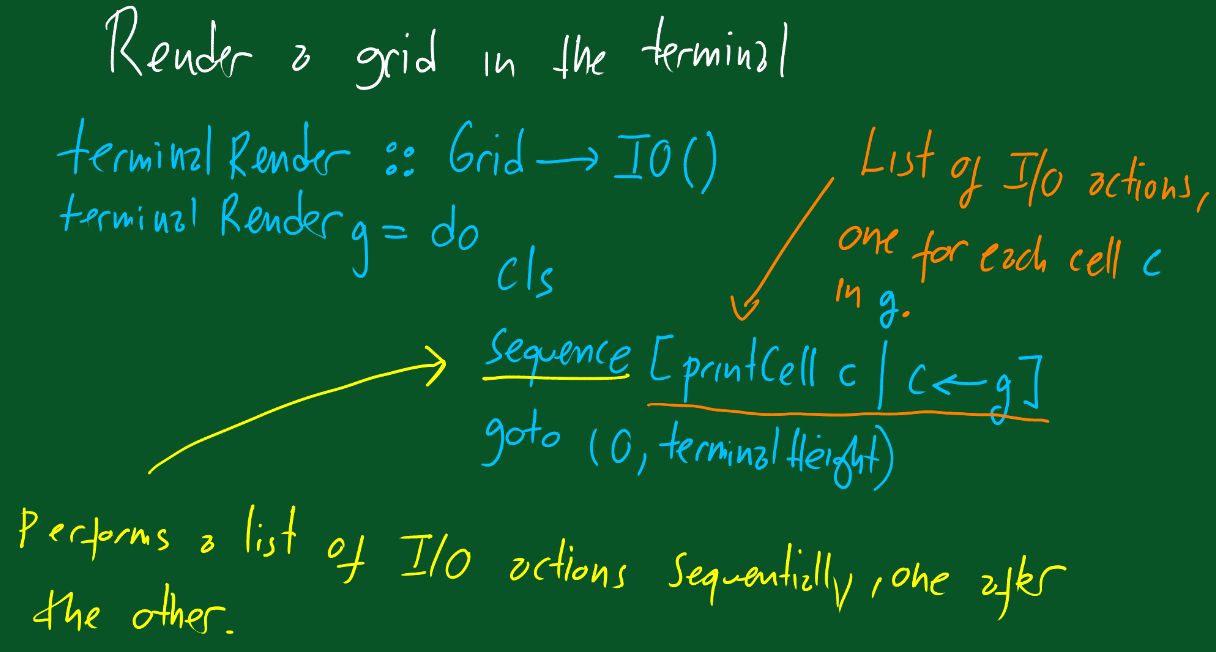 Render a grid in the terminal
terminalRender :: Grid → IO()
terminalRender g = do
cls
sequence [printCell c | c ← g]
goto (0, terminalHeight)
List of I/O actions,
one for each cell c
in g.
Performs a list of I/O actions sequentially, one after
the other.